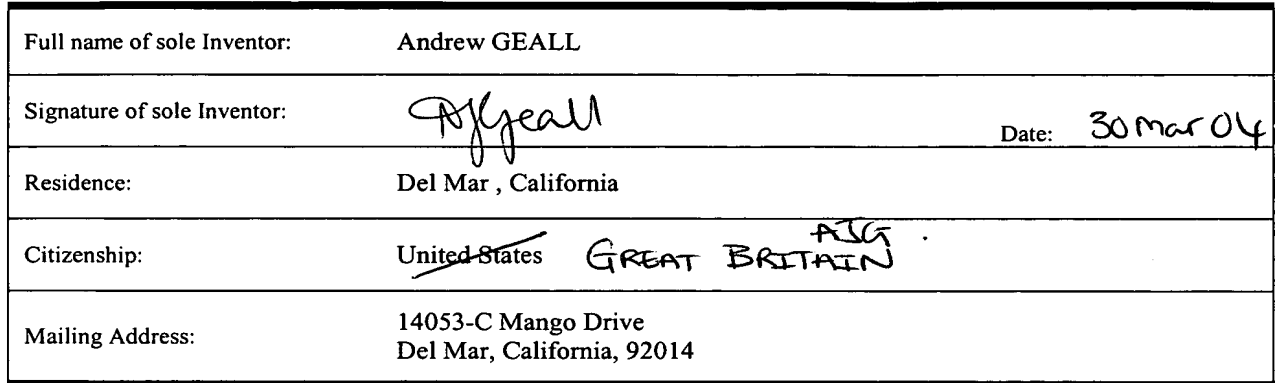 Full name of sole Inventor: Andrew GEALL
Signature of sole Inventor: AJGeall Date: 30 Mar 04
Residence: Del Mar , California
Citizenship: United States GREAT BRITAIN AJG .
Mailing Address: 14053-C Mango Drive
Del Mar, California, 92014